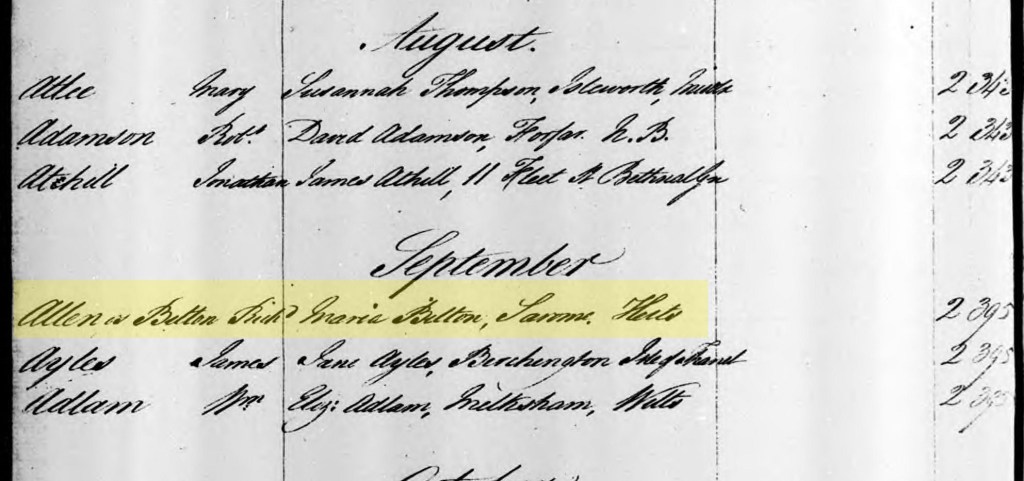 August.
Attee Mary Susannah Thompson, Isleworth, Middx 2 342
Adamson Robt. David Adamson, Forfar. N.B. 2 343
Atchill Jonathan James Athill, 11 Fleet St Bethnal Gn 2 343
September
Allen or Belton Richd Maria Belton, Sarome. Herts 2 395
Ayles James Jane Ayles, Birchington Isle of Thanet 2 395
Adlam Wm. Eliz: Adlam, Melksham, Wilts 2 395